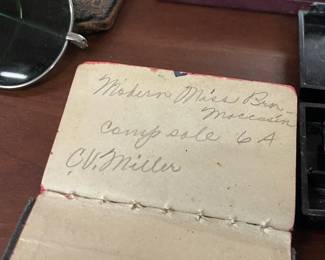 Modern Miss Brn-
Moccasin
Comp sole 6 A
C.V. Miller